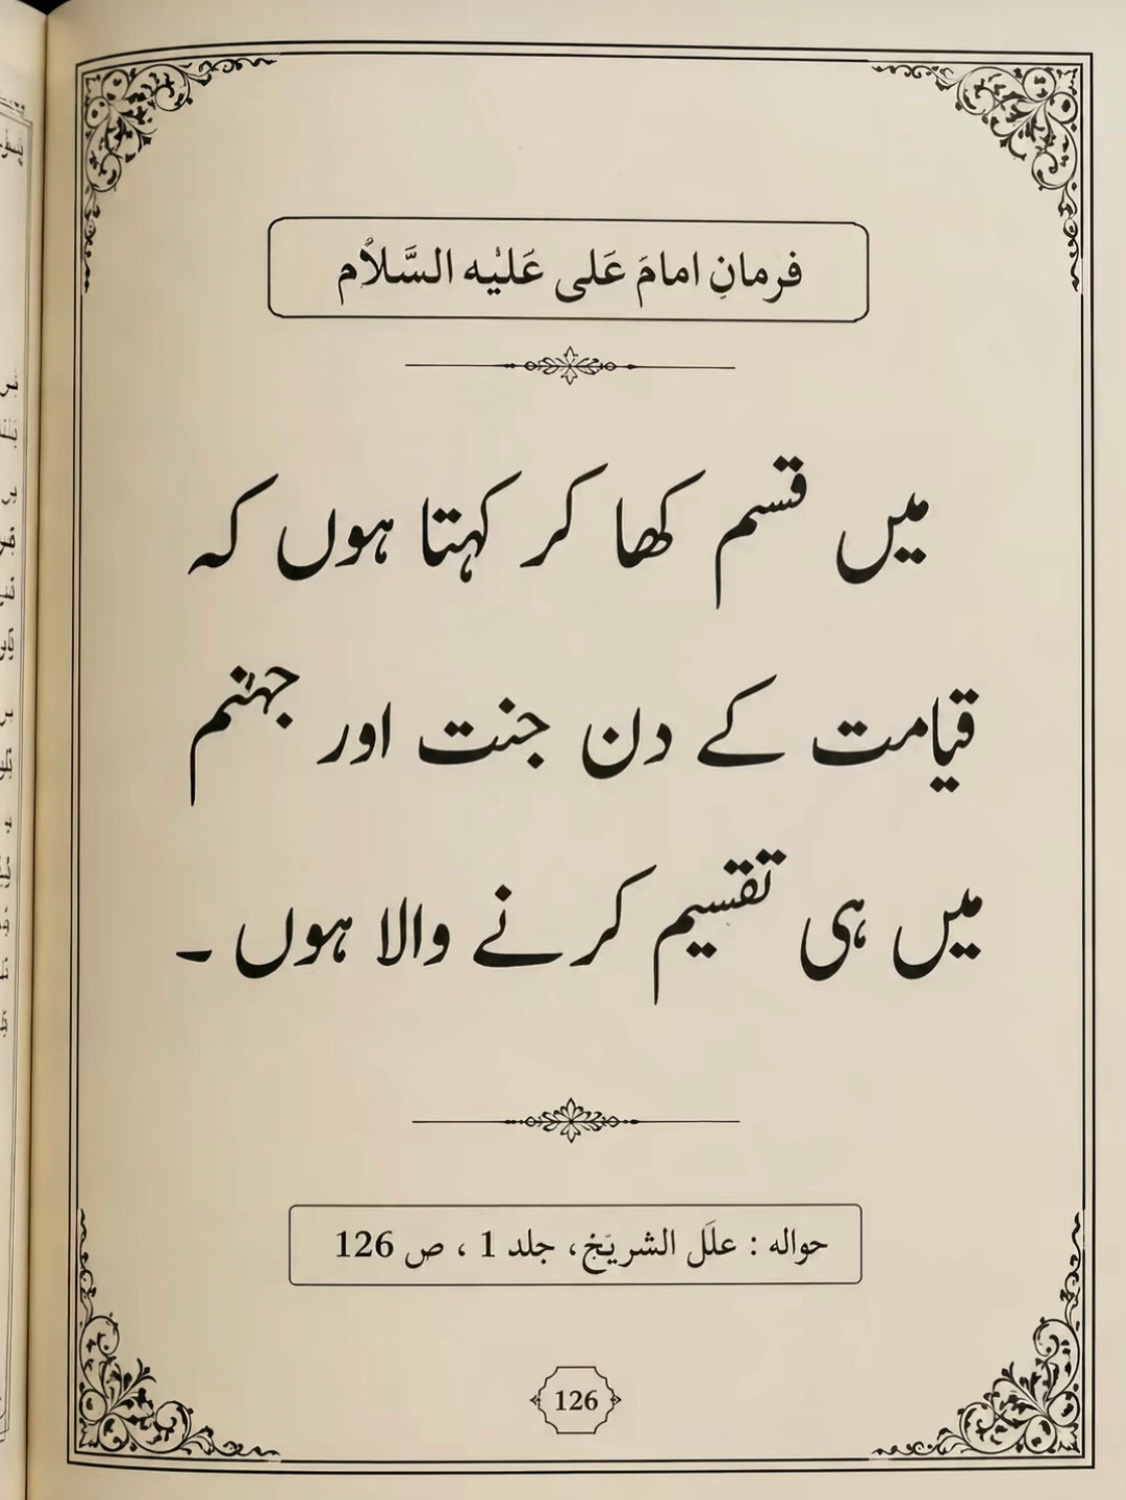 فرمانِ امامَ عَلی عَلیْہ السَّلاُم
میں قسم کھا کر کہتا ہوں کہ
قیامت کے دن جنت اور جہنم
میں ہی تقسیم کرنے والا ہوں ۔
حواله : علَل الشریَخ، جلد 1 ، ص 126
126